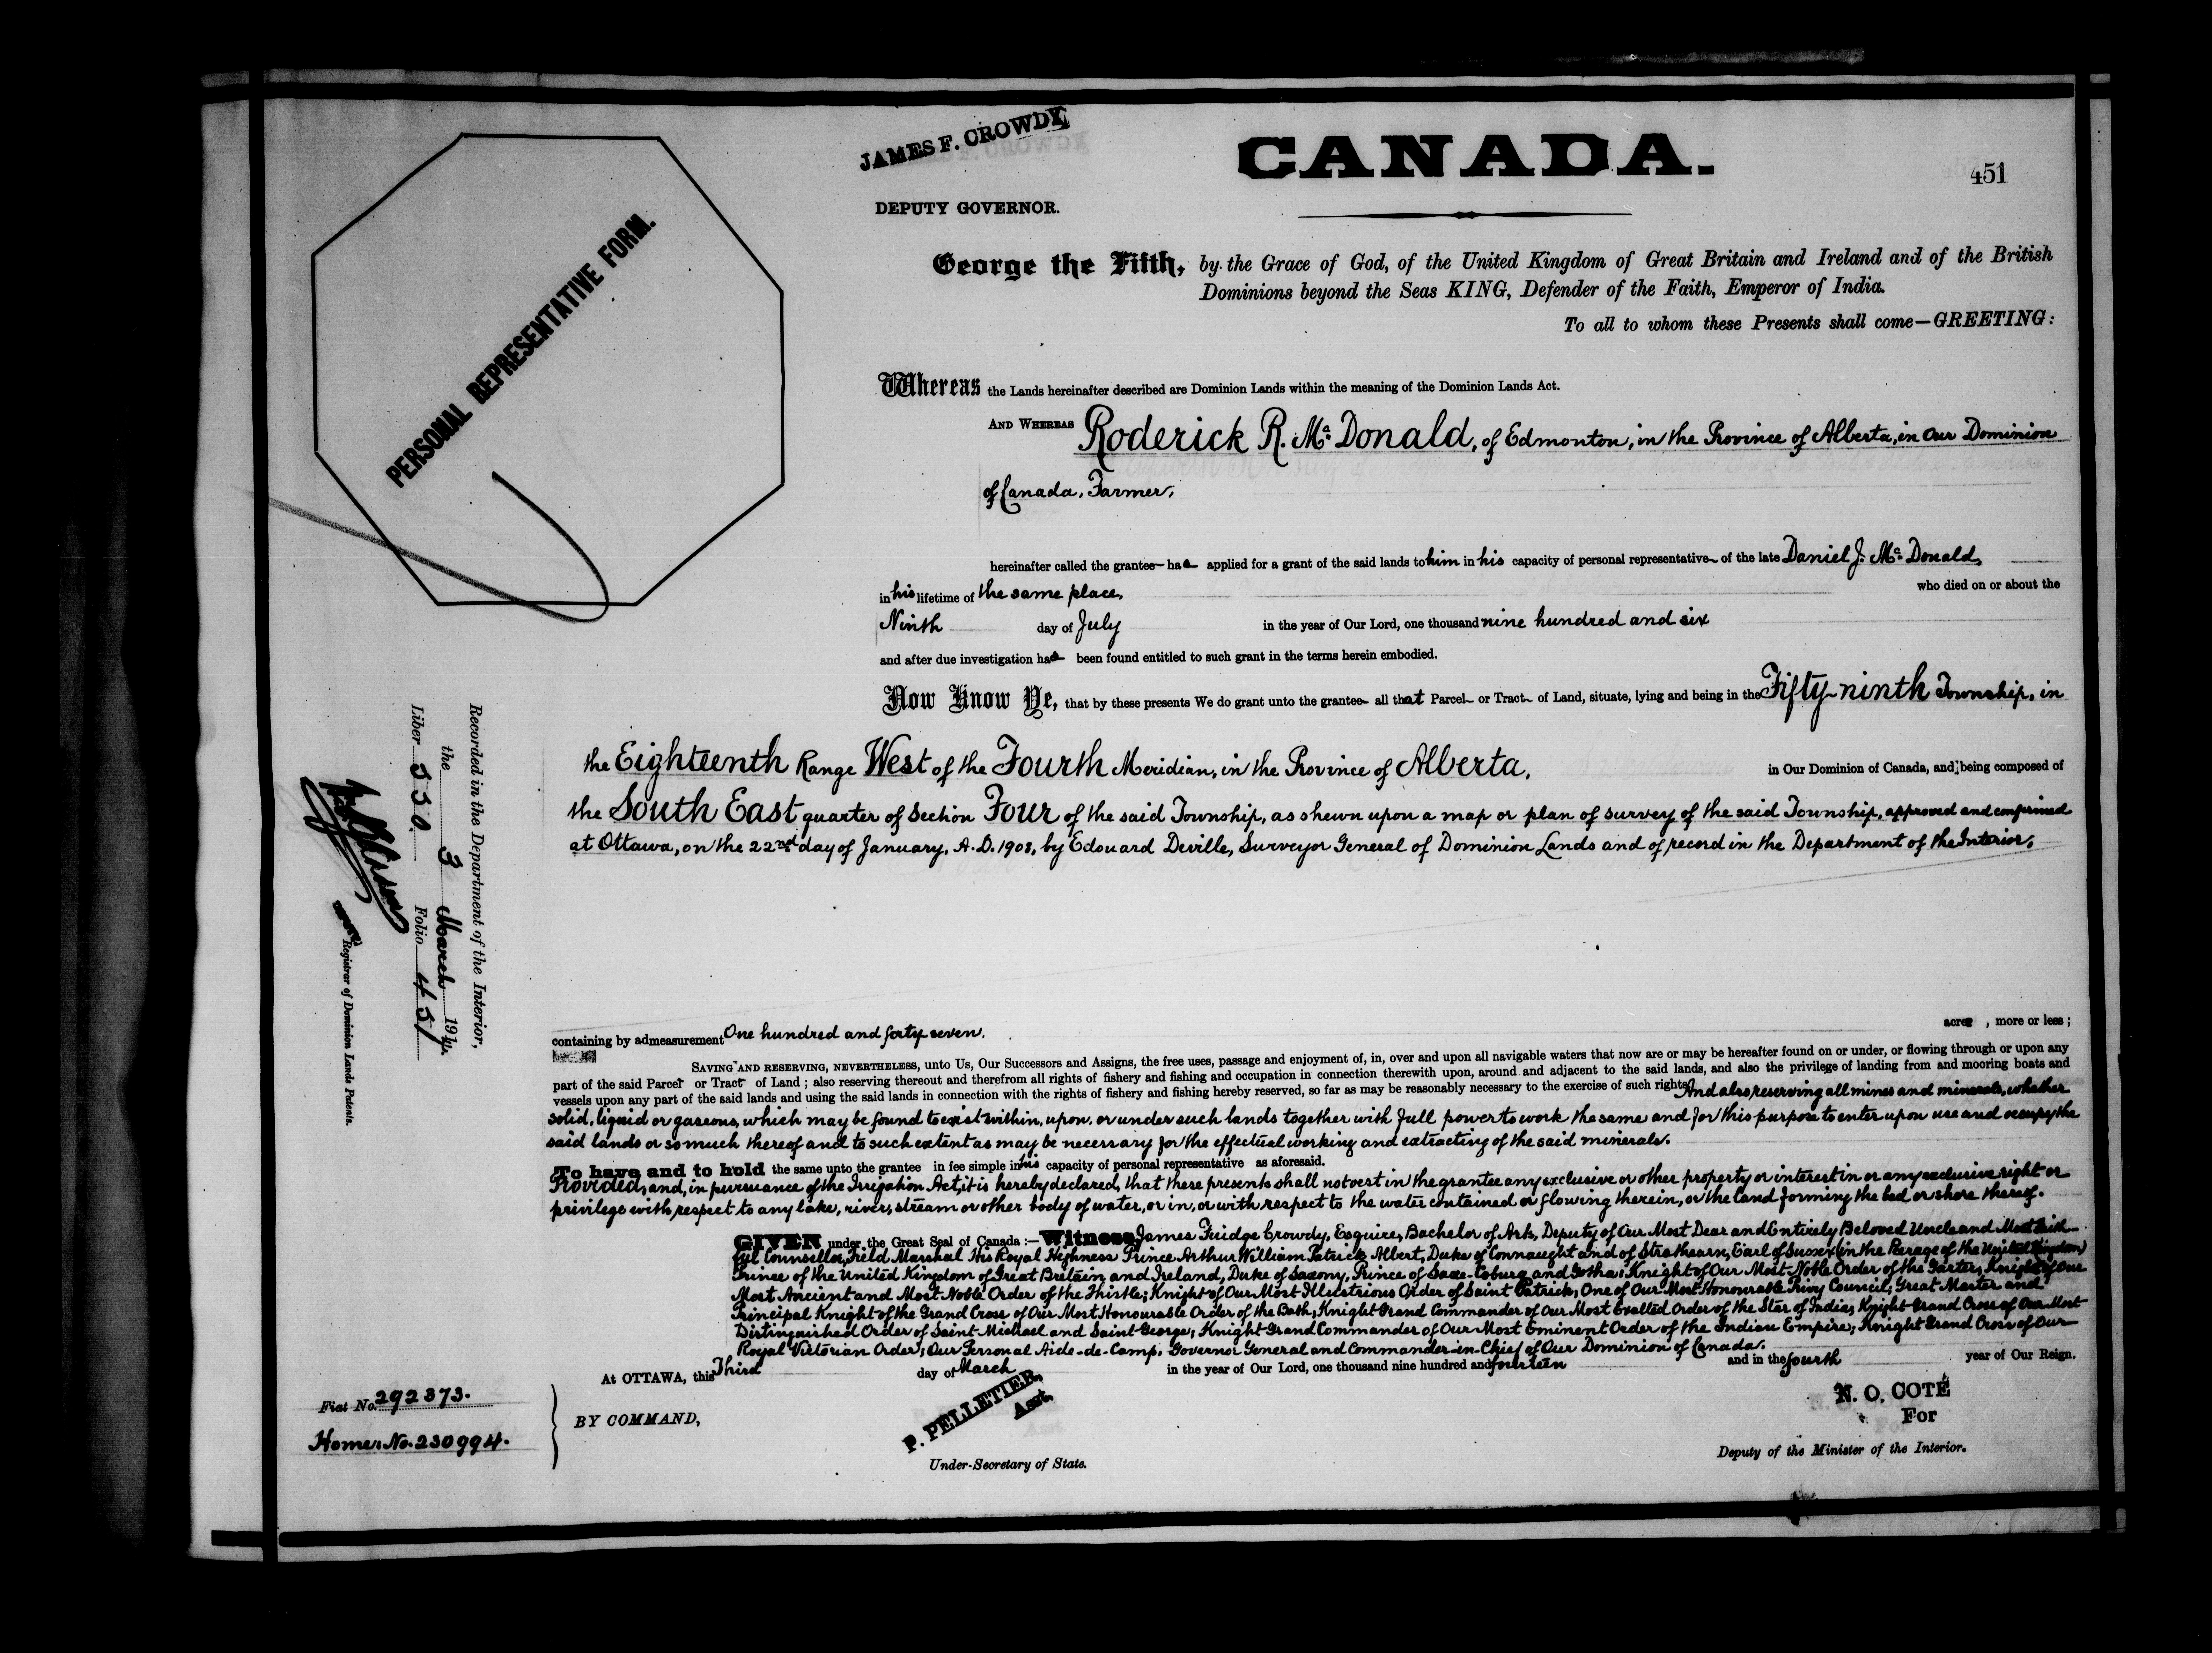 JAMES F. CROWDY,
DEPUTY GOVERNOR.
CANADA.
451
PERSONAL REPRESENTATIVE FORM.
George the Fifth, by the Grace of God, of the United Kingdom of Great Britain and Ireland and of the British
Dominions beyond the Seas KING, Defender of the Faith, Emperor of India.
To all to whom these Presents shall come—GREETING:
Whereas the Lands hereinafter described are Dominion Lands within the meaning of the Dominion Lands Act.
AND WHEREAS Roderick R. Mc Donald, of Edmonton, in the Province of Alberta, in Our Dominion
of Canada, Farmer,
hereinafter called the grantee has applied for a grant of the said lands to him in his capacity of personal representative of the late Daniel J. Mc Donald,
in his lifetime of the same place, who died on or about the
Ninth day of July in the year of Our Lord, one thousand nine hundred and six
and after due investigation has been found entitled to such grant in the terms herein embodied.
Now Know Ye, that by these presents We do grant unto the grantee all that Parcel or Tract of Land, situate, lying and being in the Fifty-ninth Township, in
the Eighteenth Range West of the Fourth Meridian, in the Province of Alberta, in Our Dominion of Canada, and being composed of
the South East quarter of Section Four of the said Township, as shewn upon a map or plan of survey of the said Township, approved and confirmed
at Ottawa, on the 22nd day of January, A.D. 1908, by Edouard Deville, Surveyor General of Dominion Lands and of record in the Department of the Interior,
containing by admeasurement One hundred and forty seven. acres, more or less;
SAVING AND RESERVING, NEVERTHELESS, unto Us, Our Successors and Assigns, the free uses, passage and enjoyment of, in, over and upon all navigable waters that now are or may be hereafter found on or under, or flowing through or upon any
part of the said Parcel or Tract of Land; also reserving thereout and therefrom all rights of fishery and fishing and occupation in connection therewith upon, around and adjacent to the said lands, and also the privilege of landing from and mooring boats and
vessels upon any part of the said lands and using the said lands in connection with the rights of fishery and fishing hereby reserved, so far as may be reasonably necessary to the exercise of such rights. And also reserving all mines and minerals, whether
solid, liquid or gaseous, which may be found to exist within, upon, or under such lands together with full power to work the same and for this purpose to enter upon use and occupy the
said lands or so much thereof and to such extent as may be necessary for the effectual working and extracting of the said minerals.
To have and to hold the same unto the grantee in fee simple in his capacity of personal representative as aforesaid.
Provided, and, in pursuance of the Irrigation Act, it is hereby declared, that these presents shall not vest in the grantee any exclusive or other property or interest in or any exclusive right or
privilege with respect to any lake, river, stream or other body of water, or in, or with respect to the water contained or flowing therein, or the land forming the bed or shore thereof.
GIVEN under the Great Seal of Canada:—Witness, James Fuidge Crowdy, Esquire, Bachelor of Arts, Deputy of Our Most Dear and Entirely Beloved Uncle and Most Faith-
ful Counsellor, Field Marshal His Royal Highness Prince Arthur William Patrick Albert, Duke of Connaught and of Strathearn, Earl of Sussex (in the Peerage of the United Kingdom)
Prince of the United Kingdom of Great Britain and Ireland, Duke of Saxony, Prince of Saxe-Coburg and Gotha; Knight of Our Most Noble Order of the Garter; Knight of Our
Most Ancient and Most Noble Order of the Thistle; Knight of Our Most Illustrious Order of Saint Patrick; One of Our Most Honourable Privy Council; Great Master and
Principal Knight of the Grand Cross of Our Most Honourable Order of the Bath; Knight Grand Commander of Our Most Exalted Order of the Star of India; Knight Grand Cross of Our Most
Distinguished Order of Saint Michael and Saint George; Knight Grand Commander of Our Most Eminent Order of the Indian Empire; Knight Grand Cross of Our
Royal Victorian Order; Our Personal Aide-de-Camp, Governor General and Commander-in-Chief of Our Dominion of Canada.
At OTTAWA, this Third day of March in the year of Our Lord, one thousand nine hundred and fourteen and in the fourth year of Our Reign.
BY COMMAND,
P. PELLETIER,
Asst.
Under-Secretary of State.
N. O. COTÉ
For
Deputy of the Minister of the Interior.
Fiat No. 292373.
Home. No. 230994.
Recorded in the Department of the Interior,
the 3 March 1914.
Liber 330. Folio 451
Registrar of Dominion Lands Patents.